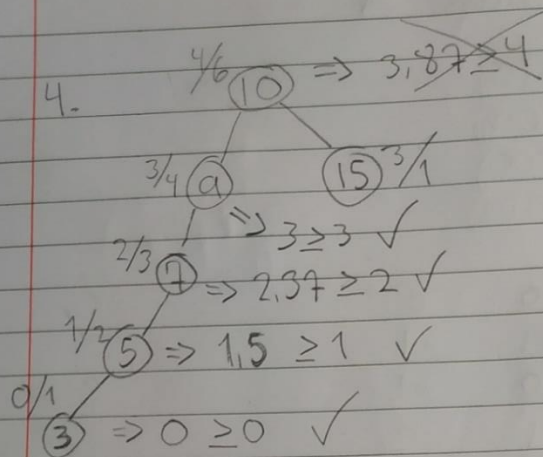 4/6 10 => 3,87 ≥ 4
4.
3/4 9 15 3/1
=> 3 ≥ 3 ✓
2/3 7 => 2,37 ≥ 2 ✓
1/2 5 => 1,5 ≥ 1 ✓
0/1
3 => 0 ≥ 0 ✓